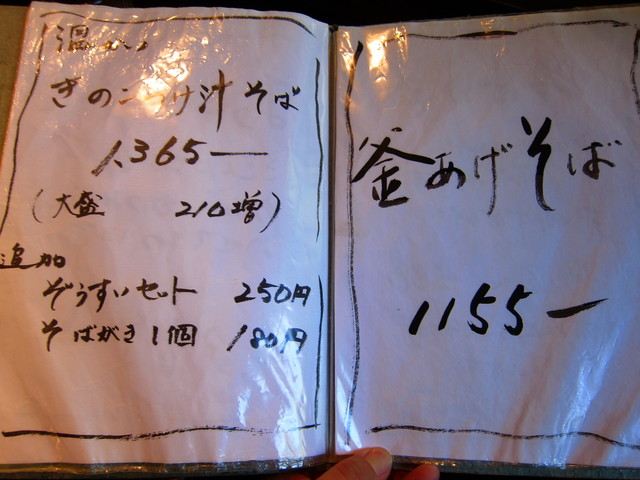 温かい
きのこつけ汁そば
1,365―
(大盛 210増)
追加
ぞうすいセット 250円
そばがき1個 180円
釜あげそば
1155―